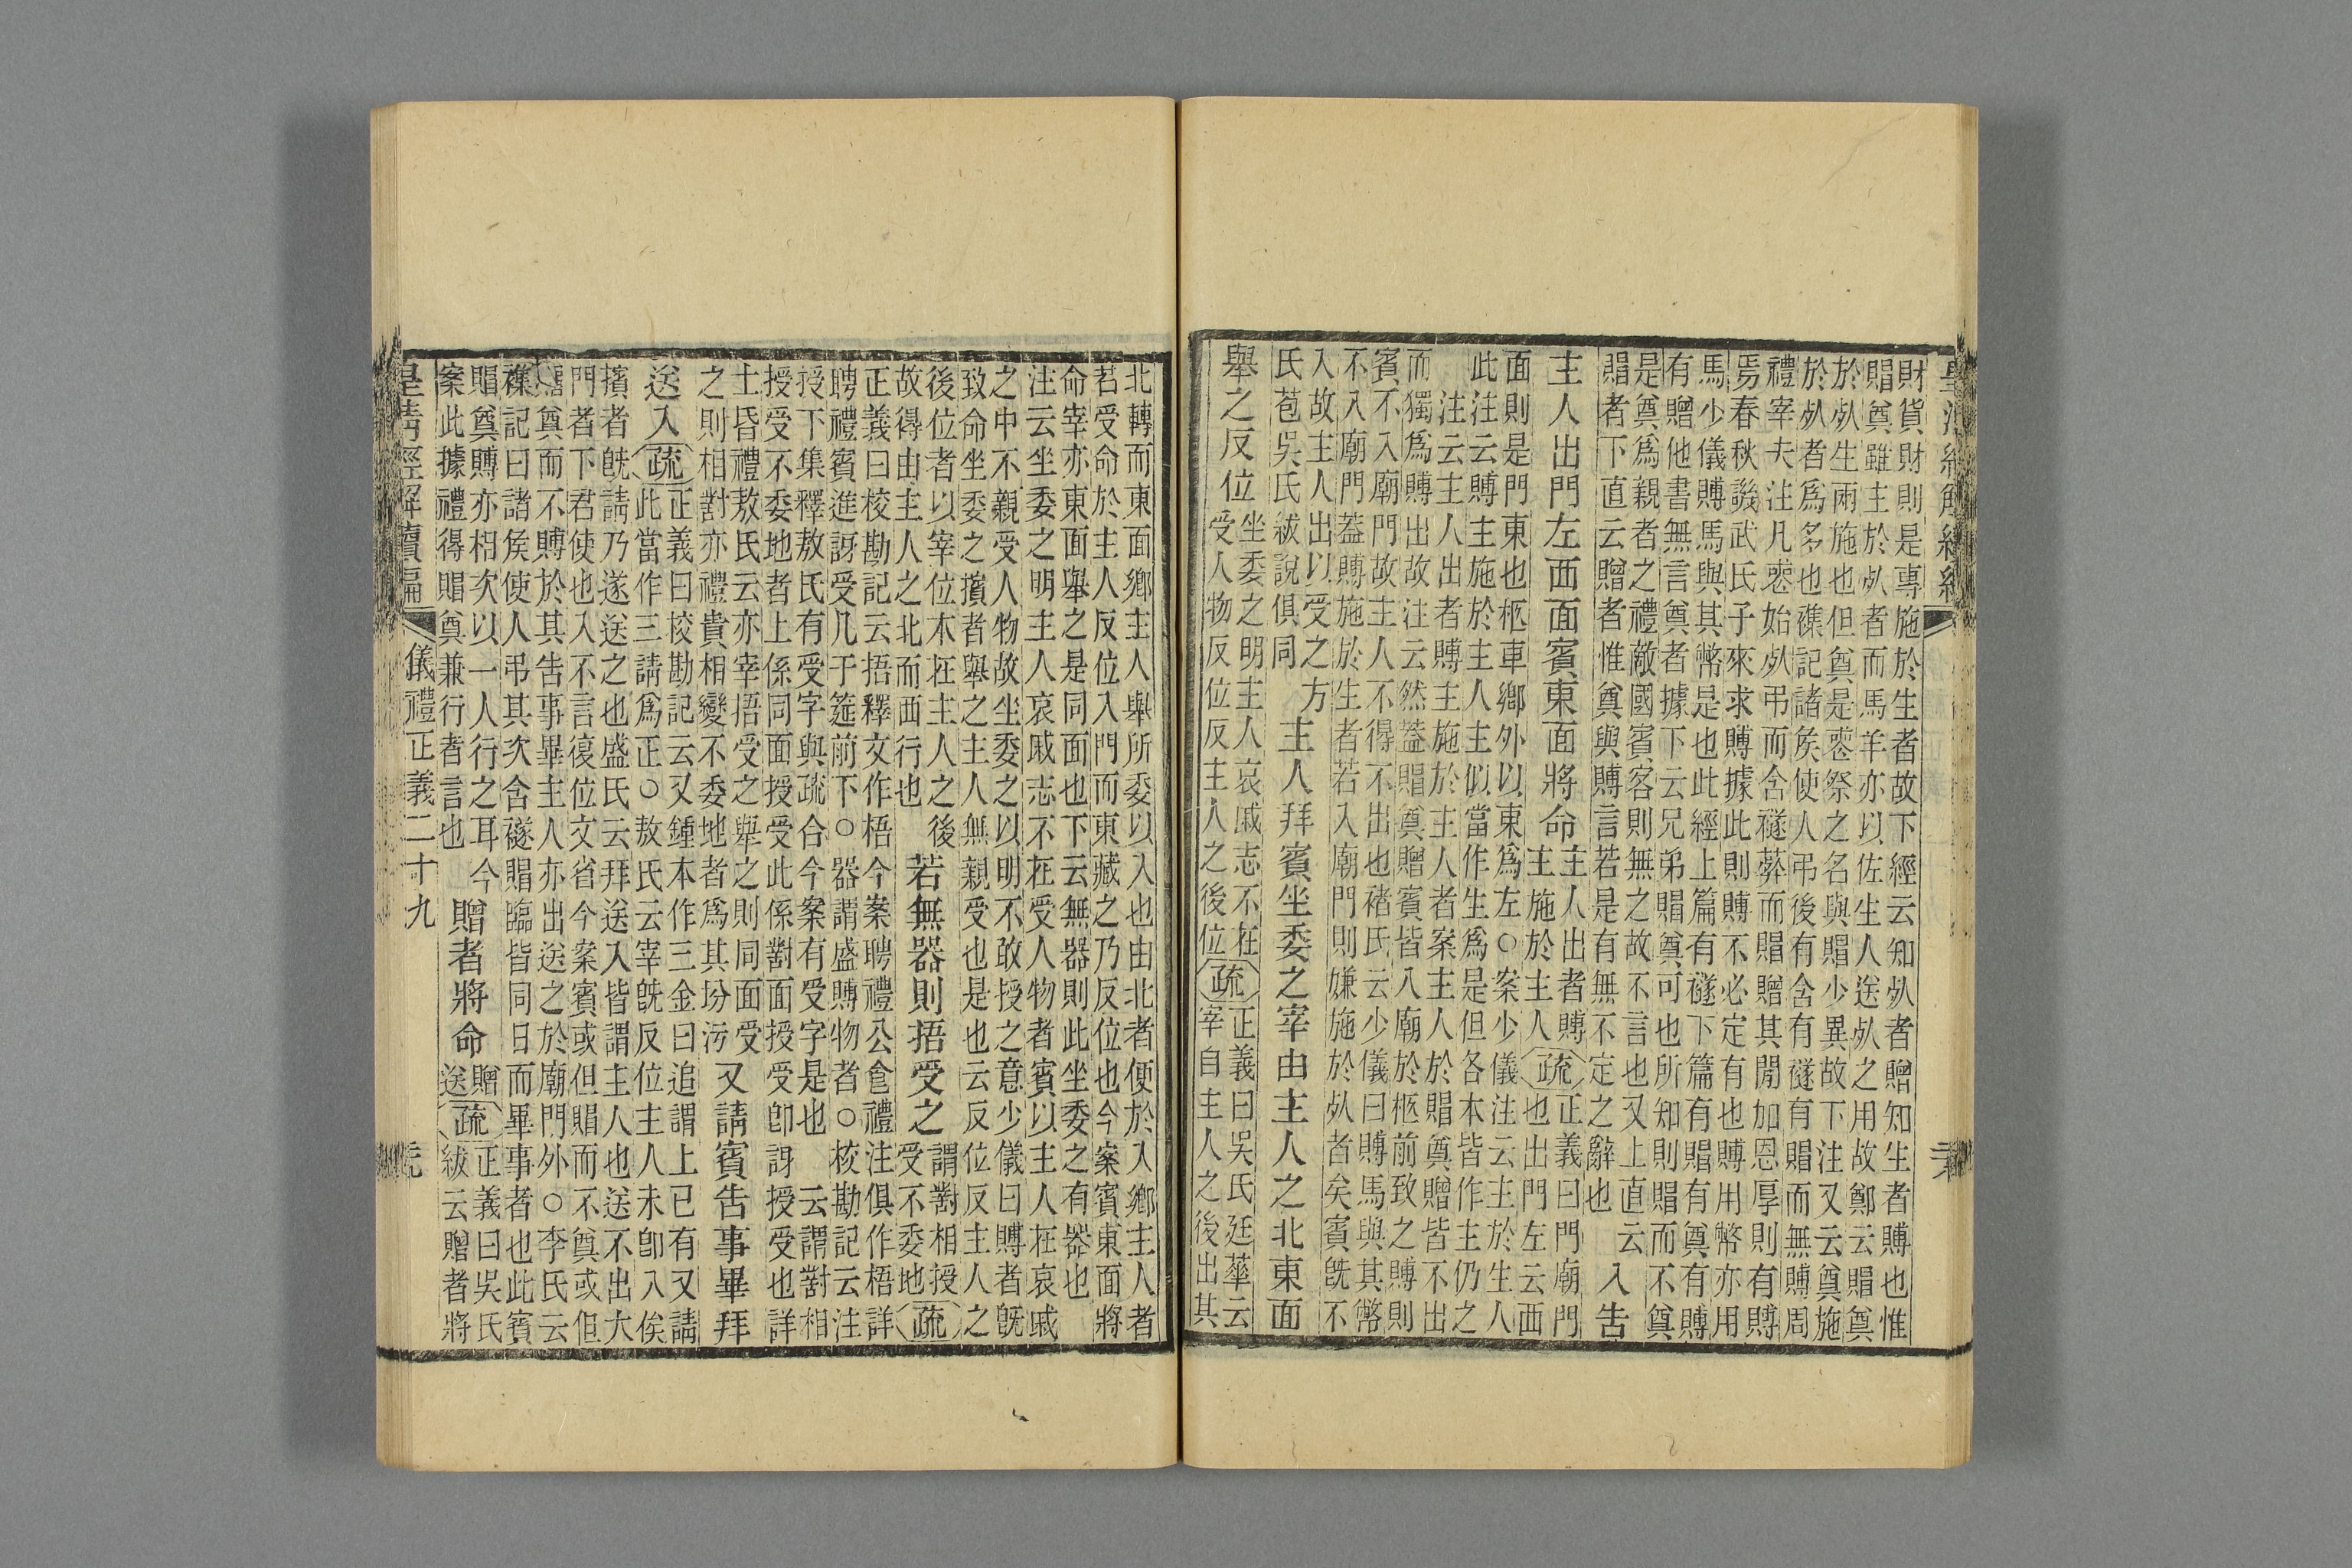 財貨財則是專施於生者故下經云知𣦸者贈知生者賻也惟
賵奠雖主於𣦸者而馬羊亦以佐生人送𣦸之用故鄭云賵奠
於𣦸生兩施也但奠是䘮祭之名與賵少異故下注又云奠施
於𣦸者爲多也襍記諸矦使人弔後有含有襚有賵而無賻周
禮宰夫注凡䘮始𣦸弔而含襚葬而賵贈其閒加恩厚則有賻
焉春秋譏武氏子來求賻據此則賻不必定有也賻用幣亦用
馬少儀賻馬與其幣是也此經上篇有襚下篇有賵有奠有賻
有贈他書無言奠者據下云兄弟賵奠可也所知則賵而不奠
是奠爲親者之禮敵國賓客則無之故不言也又上直云
賵者下直云贈者惟奠與賻言若是有無不定之辭也
入告
主人出門左西面賓東面將命
主人出者賻
主施於主人
疏
正義曰門廟門
也出門左云西
面則是門東也柩車鄉外以東爲左○案少儀注云主於生人
此注云賻主施於主人主似當作生爲是但各本皆作主仍之
注云主人出者賻主施於主人者案主人於賵奠贈皆不出
而獨爲賻出故注云然蓋賵奠贈賓皆入廟於柩前致之賻則
賓不入廟門故主人不得不出也褚氏云少儀曰賻馬與其幣
不入廟門蓋賻施於生者若入廟門則嫌施於𣦸者矣賓旣不
入故主人出以受之方
氏苞吳氏紱說俱同
主人拜賓坐委之宰由主人之北東面
舉之反位
坐委之明主人哀戚志不在
受人物反位反主人之後位
疏
正義曰吳氏廷華云
宰自主人之後出其
北轉而東面鄉主人舉所委以入也由北者便於入鄉主人者
若受命於主人反位入門而東藏之乃反位也今案賓東面將
命宰亦東面舉之是同面也下云無器則此坐委之有器也
注云坐委之明主人哀戚志不在受人物者賓以主人在哀戚
之中不親受人物故坐委之以明不敢授之意少儀曰賻者旣
致命坐委之擯者舉之主人無親受也是也云反位反主人之
後位者以宰位本在主人之後
故得由主人之北而西行也
若無器則捂受之
謂對相授
受不委地
疏
正義曰校勘記云捂釋文作梧今案聘禮公食禮注俱作梧詳
聘禮賓進訝受几于筵前下○器謂盛賻物者○校勘記云注
授下集釋敖氏有受字與疏合今案有受字是也云謂對相
授受不委地者上係同面授受此係對面授受卽訝授受也詳
士昏禮敖氏云亦宰捂受之舉之則同面受
之則相對亦禮貴相變不委地者爲其坋污
又請賓告事畢拜
送入
疏
正義曰校勘記云又鍾本作三金曰追謂上已有又請
此當作三請爲正○敖氏云宰旣反位主人未卽入俟
擯者旣請乃遂送之也盛氏云拜送入皆謂主人也送不出大
門者下君使也入不言復位文省今案賓或但賵而不奠或但
賵奠而不賻於其告事畢主人亦出送之於廟門外○李氏云
襍記曰諸矦使人弔其次含襚賵臨皆同日而畢事者也此賓
賵奠賻亦相次以一人行之耳今
案此據禮得賵奠兼行者言也
贈者將命
贈
送
疏
正義曰吳氏
紱云贈者將
皇清經解續編
儀禮正義二十九